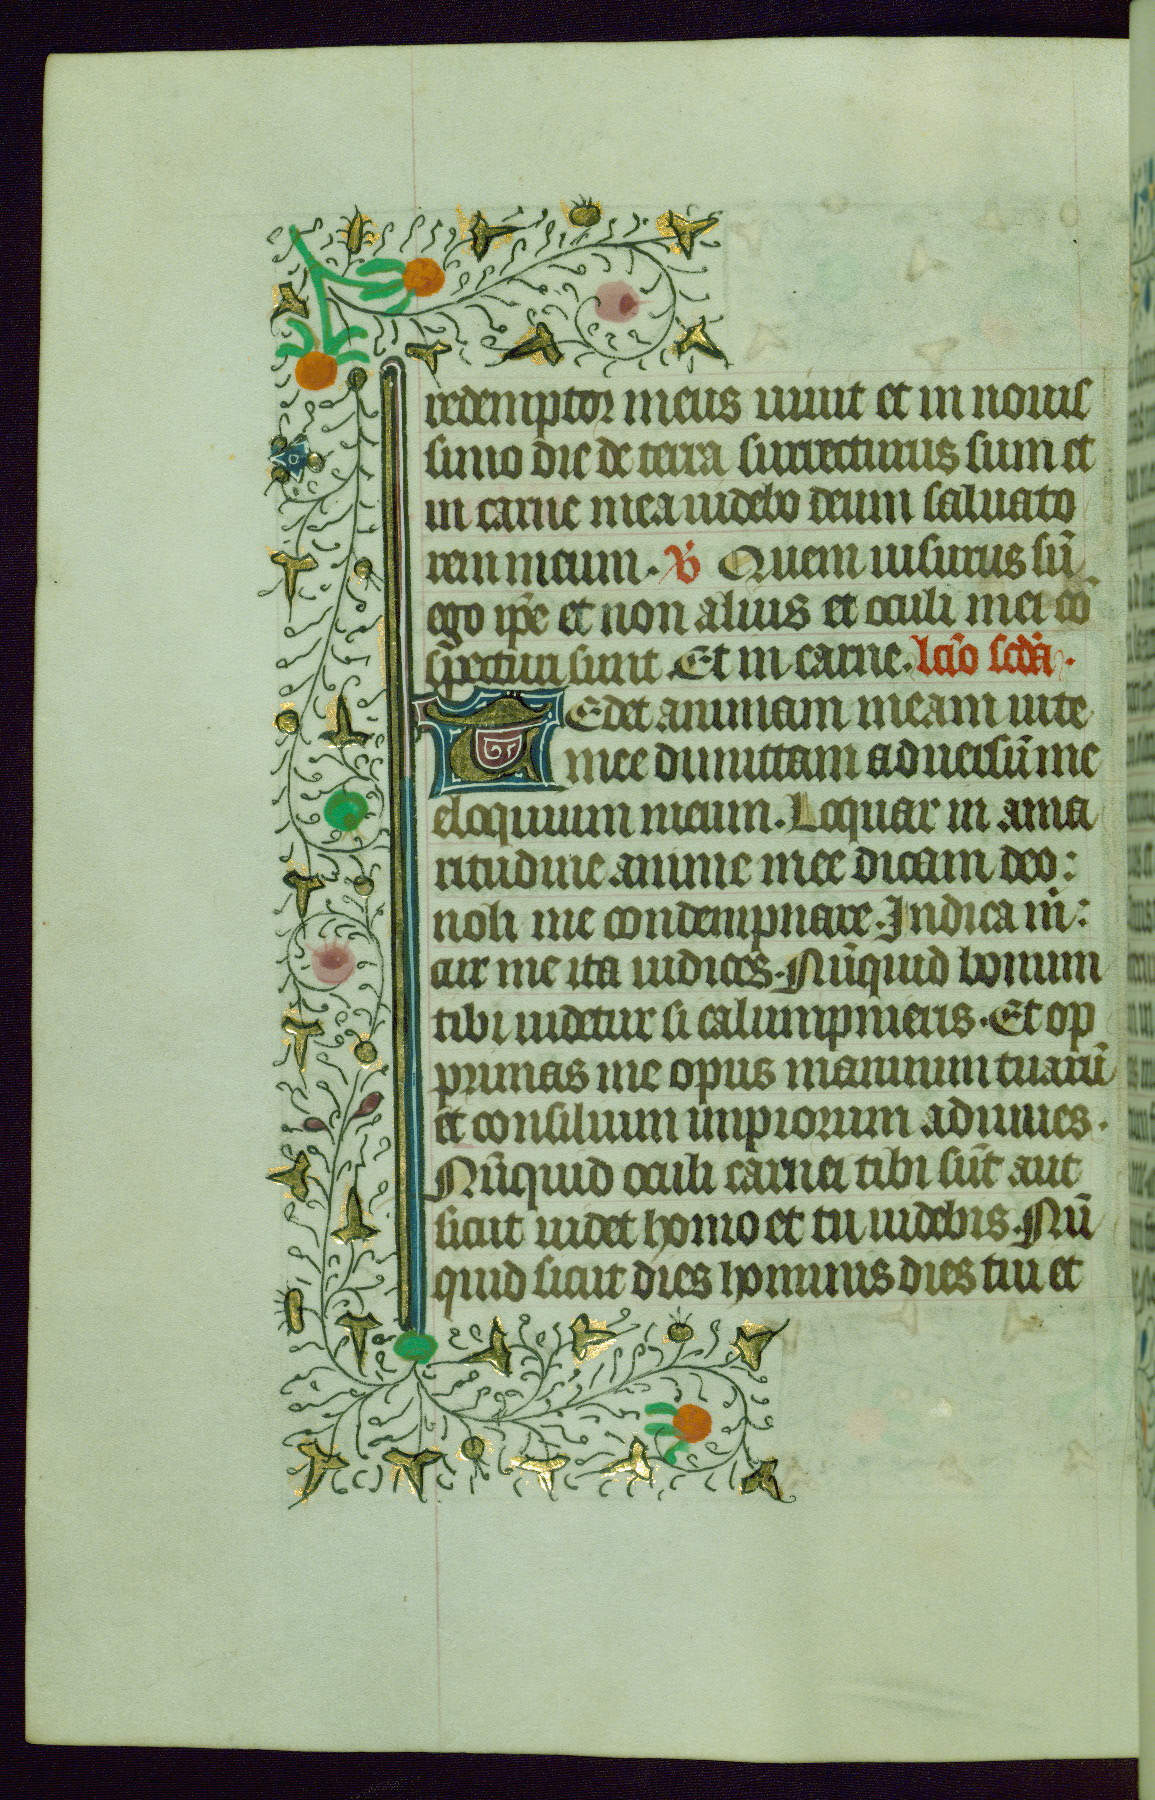 redemptor meus viuit et in nouis
simo die de terra surrecturus sum et
in carne mea uidebo deum saluato
rem meum. V Quem uisurus sū
ego ip̄e et non alius et oculi mei cō
sp̄ecturi sunt Et in carne. lc̄io scd̄a.
Tedet animam meam uite
mee dimittam aduersū me
eloquium meum. Loquar in ama
ritudine anime mee dicam deo:
noli me condempnare. Indica m̄:
cur me ita iudices. Nūquid bonum
tibi uidetur si calumpnieris. Et op
primas me opus manuum tuarū
et consilium impiorum adiuues.
Nūquid oculi carnei tibi sūt aut
sicut uidet homo et tu uidebis. Nū
quid sicut dies hominis dies tui et